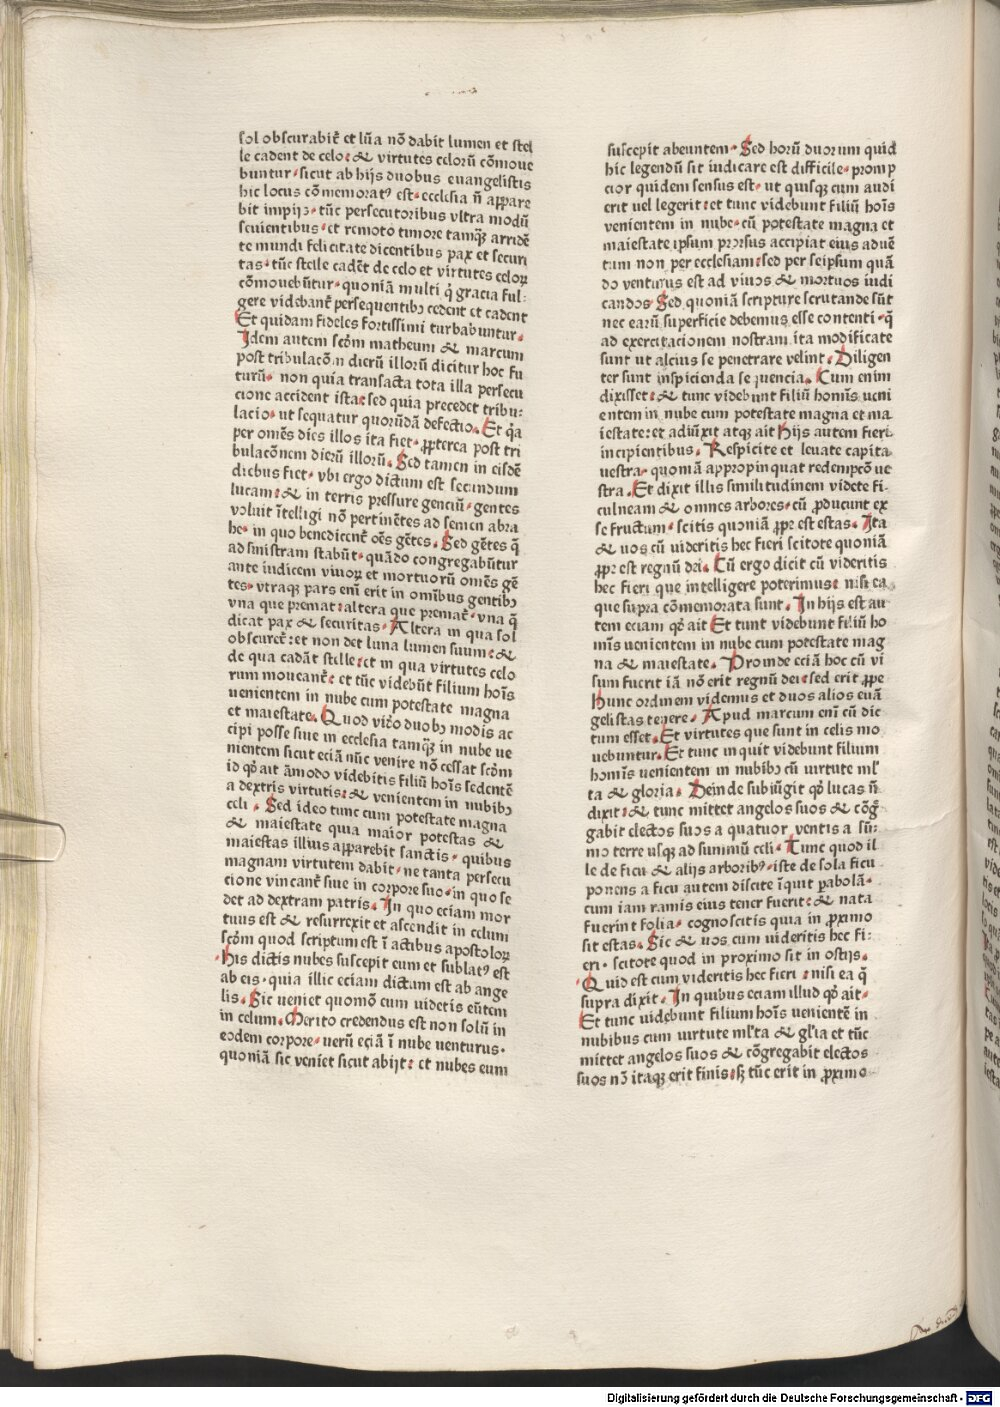 sol obscurabit̃ et lũa nõ dabit lumen et stel
le cadent de celo: & virtutes celorũ cõmoue
buntur. sicut ab hijs duobus euangelistis
hic locus cõmemoratꝰ est. ecclesia ñ appare
bit impijs. tũc persecutoribus vltra modũ
seuientibus. et remoto timore tamq̃ arridẽ
te mundi felicitate dicentibus pax et securi
tas. tũc stelle cadẽt de celo et virtutes celoꝝ
cõmouebũtur. quoniã multi q̃ gracia ful:
gere videbant̃ persequentibꝫ cedent et cadent
Et quidam fideles fortissimi turbabuntur.
Idem autem scõm matheum & marcum
post tribulacõnem dierũ illorũ dicitur hoc fu
turũ. non quia transacta tota illa persecu
cione accident ista: sed quia precedet tribu:
lacio. ut sequatur quorũdã defectio. Et q̃a
per omẽs dies illos ita fiet. ꝓpterea post tri
bulacõnem dierũ illorũ. Sed tamen in eisdẽ
diebus fiet. vbi ergo dictum est secundum
lucam: & in terris pressure genciũ. gentes
voluit ĩtelligi nõ pertinẽtes ad semen abra
he. in quo benedicent̃ oẽs gẽtes. Sed gẽtes q̃
ad sinistram stabũt. quãdo congregabũtur
ante iudicem viuoꝝ et mortuorũ omẽs gẽ
tes. vtraqꝫ pars enĩ erit in omĩbus gentibꝫ
vna que premat: altera que premat̃. vna q̃
dicat pax & securitas. Altera in qua sol
obscuret̃: et non det luna lumen suum: &
de qua cadãt stelle: et in qua virtutes celo
rum moueant̃: et tũc videbũt filium hoĩs
uenientem in nube cum potestate magna
et maiestate. Quod vĩro duobꝫ modis ac
cipi posse siue in ecclesia tamq̃ in nube ue
nientem sicut eciã nũc venire nõ cessat scõm
id qõ ait ãmodo videbitis filiũ hoĩs sedentẽ
a dextris virtutis: & venientem in nubibꝫ
celi. Sed ideo tunc cum potestate magna
& maiestate quia maior potestas &
maiestas illius apparebit sanctis. quibus
magnam virtutem dabit. ne tanta persecu
cione vincant̃ siue in corpore suo. in quo se
det ad dextram patris. In quo eciam mor
tuus est & resurrexit et ascendit in celum
scõm quod scriptum est ĩ actibus apostoloꝝ
His dictis nubes suscepit eum et sublatꝰ est
ab eis. quia illic eciam dictum est ab ange
lis. Sic ueniet quomõ cum videtis eũtem
in celum. Merito credendus est non solũ in
eodem corpore. uerũ eciã ĩ nube venturus.
quoniã sic veniet sicut abijt: et nubes eum
suscepit abeuntem. Sed horũ duorum quid
hic legendũ sit iudicare est difficile. promp
cior quidem sensus est. ut quisqꝫ cum audi
erit uel legerit: et tunc videbunt filiũ hoĩs
venientem in nube. cũ potestate magna et
maiestate ipsum prorsus accipiat eius aduẽ
tum non per ecclesiam: sed per seipsum quã
do venturus est ad viuos & mortuos iudi
candos. Sed quoniã scripture scrutande sũt
nec earũ superficie debemus esse contenti. q̃
ad exercitacionem nostram ita modificate
sunt ut alcius se penetrare velint. Diligen
ter sunt inspicienda sequencia. Cum enim
dixisset: & tunc videbunt filiũ homĩs ueni
entem in nube cum potestate magna et ma
iestate: et adiũxit atqꝫ ait Hijs autem fieri
incipientibus. Respicite et leuate capita
uestra. quoniã appropinquat redempcõ ue
stra. Et dixit illis similitudinem videte fi:
culneam & omnes arbores. cũ ꝓducunt ex
se fructum. scitis quoniã ꝓpe est estas. Ita
& uos cũ videritis hec fieri scitote quoniã
ꝓpe est regnũ dei. Cũ ergo dicit cũ videritis
hec fieri que intelligere poterimus: nisi ea
que supra cõmemorata sunt. In hijs est au
tem eciam qõ ait Et tunt videbunt filiũ ho
mĩs uenientem in nube cum potestate mag
na & maiestate. Proinde eciã hoc cũ vi
sum fuerit iã nõ erit regnũ dei: sed erit ꝓpe
Hunc ordinem videmus et duos alios euã
gelistas tenere. Apud marcum enĩ cũ dic
tum esset. Et virtutes que sunt in celis mo
uebuntur. Et tunc inquit videbunt filium
homĩs uenientem in nubibꝫ cũ uirtute ml̃
ta & gloria. Deinde subiũgit qõ lucas ñ
dixit: & tunc mittet angelos suos & cõg̃
gabit electos suos a quatuor ventis a sũ:
mo terre usqꝫ ad summũ celi. Tunc quod il
le de ficu & alijs arboribꝰ. iste de sola ficu
ponens a ficu autem discite ĩquit ꝑabolã.
cum iam ramis eius tener fuerit: & nata
fuerint folia. cognoscitis quia in ꝓximo
sit estas. Sic & uos cum uideritis hec fi:
eri. scitote quod in proximo sit in ostijs.
Quid est cum videritis hec fieri: nisi ea q̃
supra dixit. In quibus eciam illud qõ ait.
Et tunc uidebunt filium hoĩs uenientẽ in
nubibus cum uirtute ml̃ta & gl̃ia et tũc
mittet angelos suos & cõgregabit electos
suos nõ itaqꝫ erit finis: sꝫ tũc erit in ꝓximo
Digitalisierung gefördert durch die Deutsche Forschungsgemeinschaft - DFG